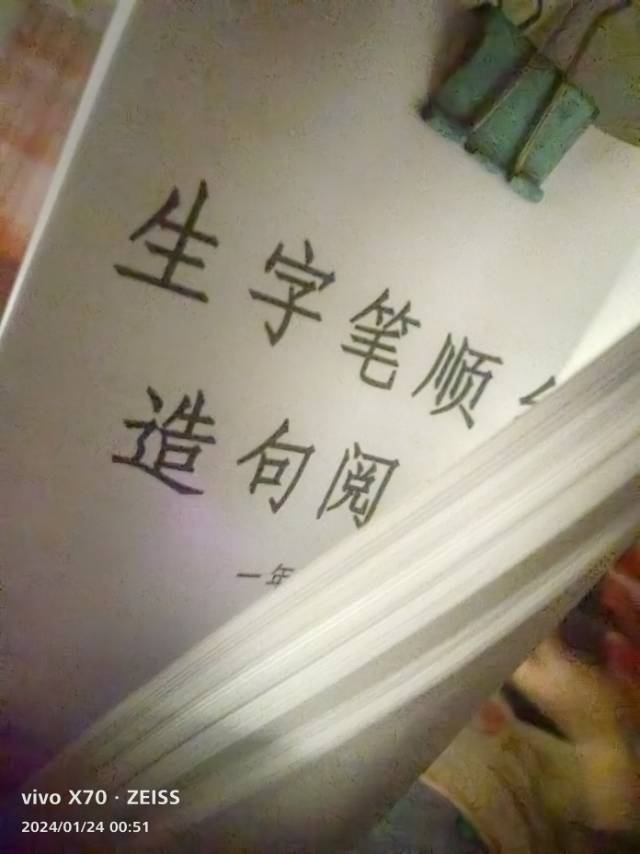 生字笔顺
造句阅
一年
vivo X70 · ZEISS
2024/01/24 00:51